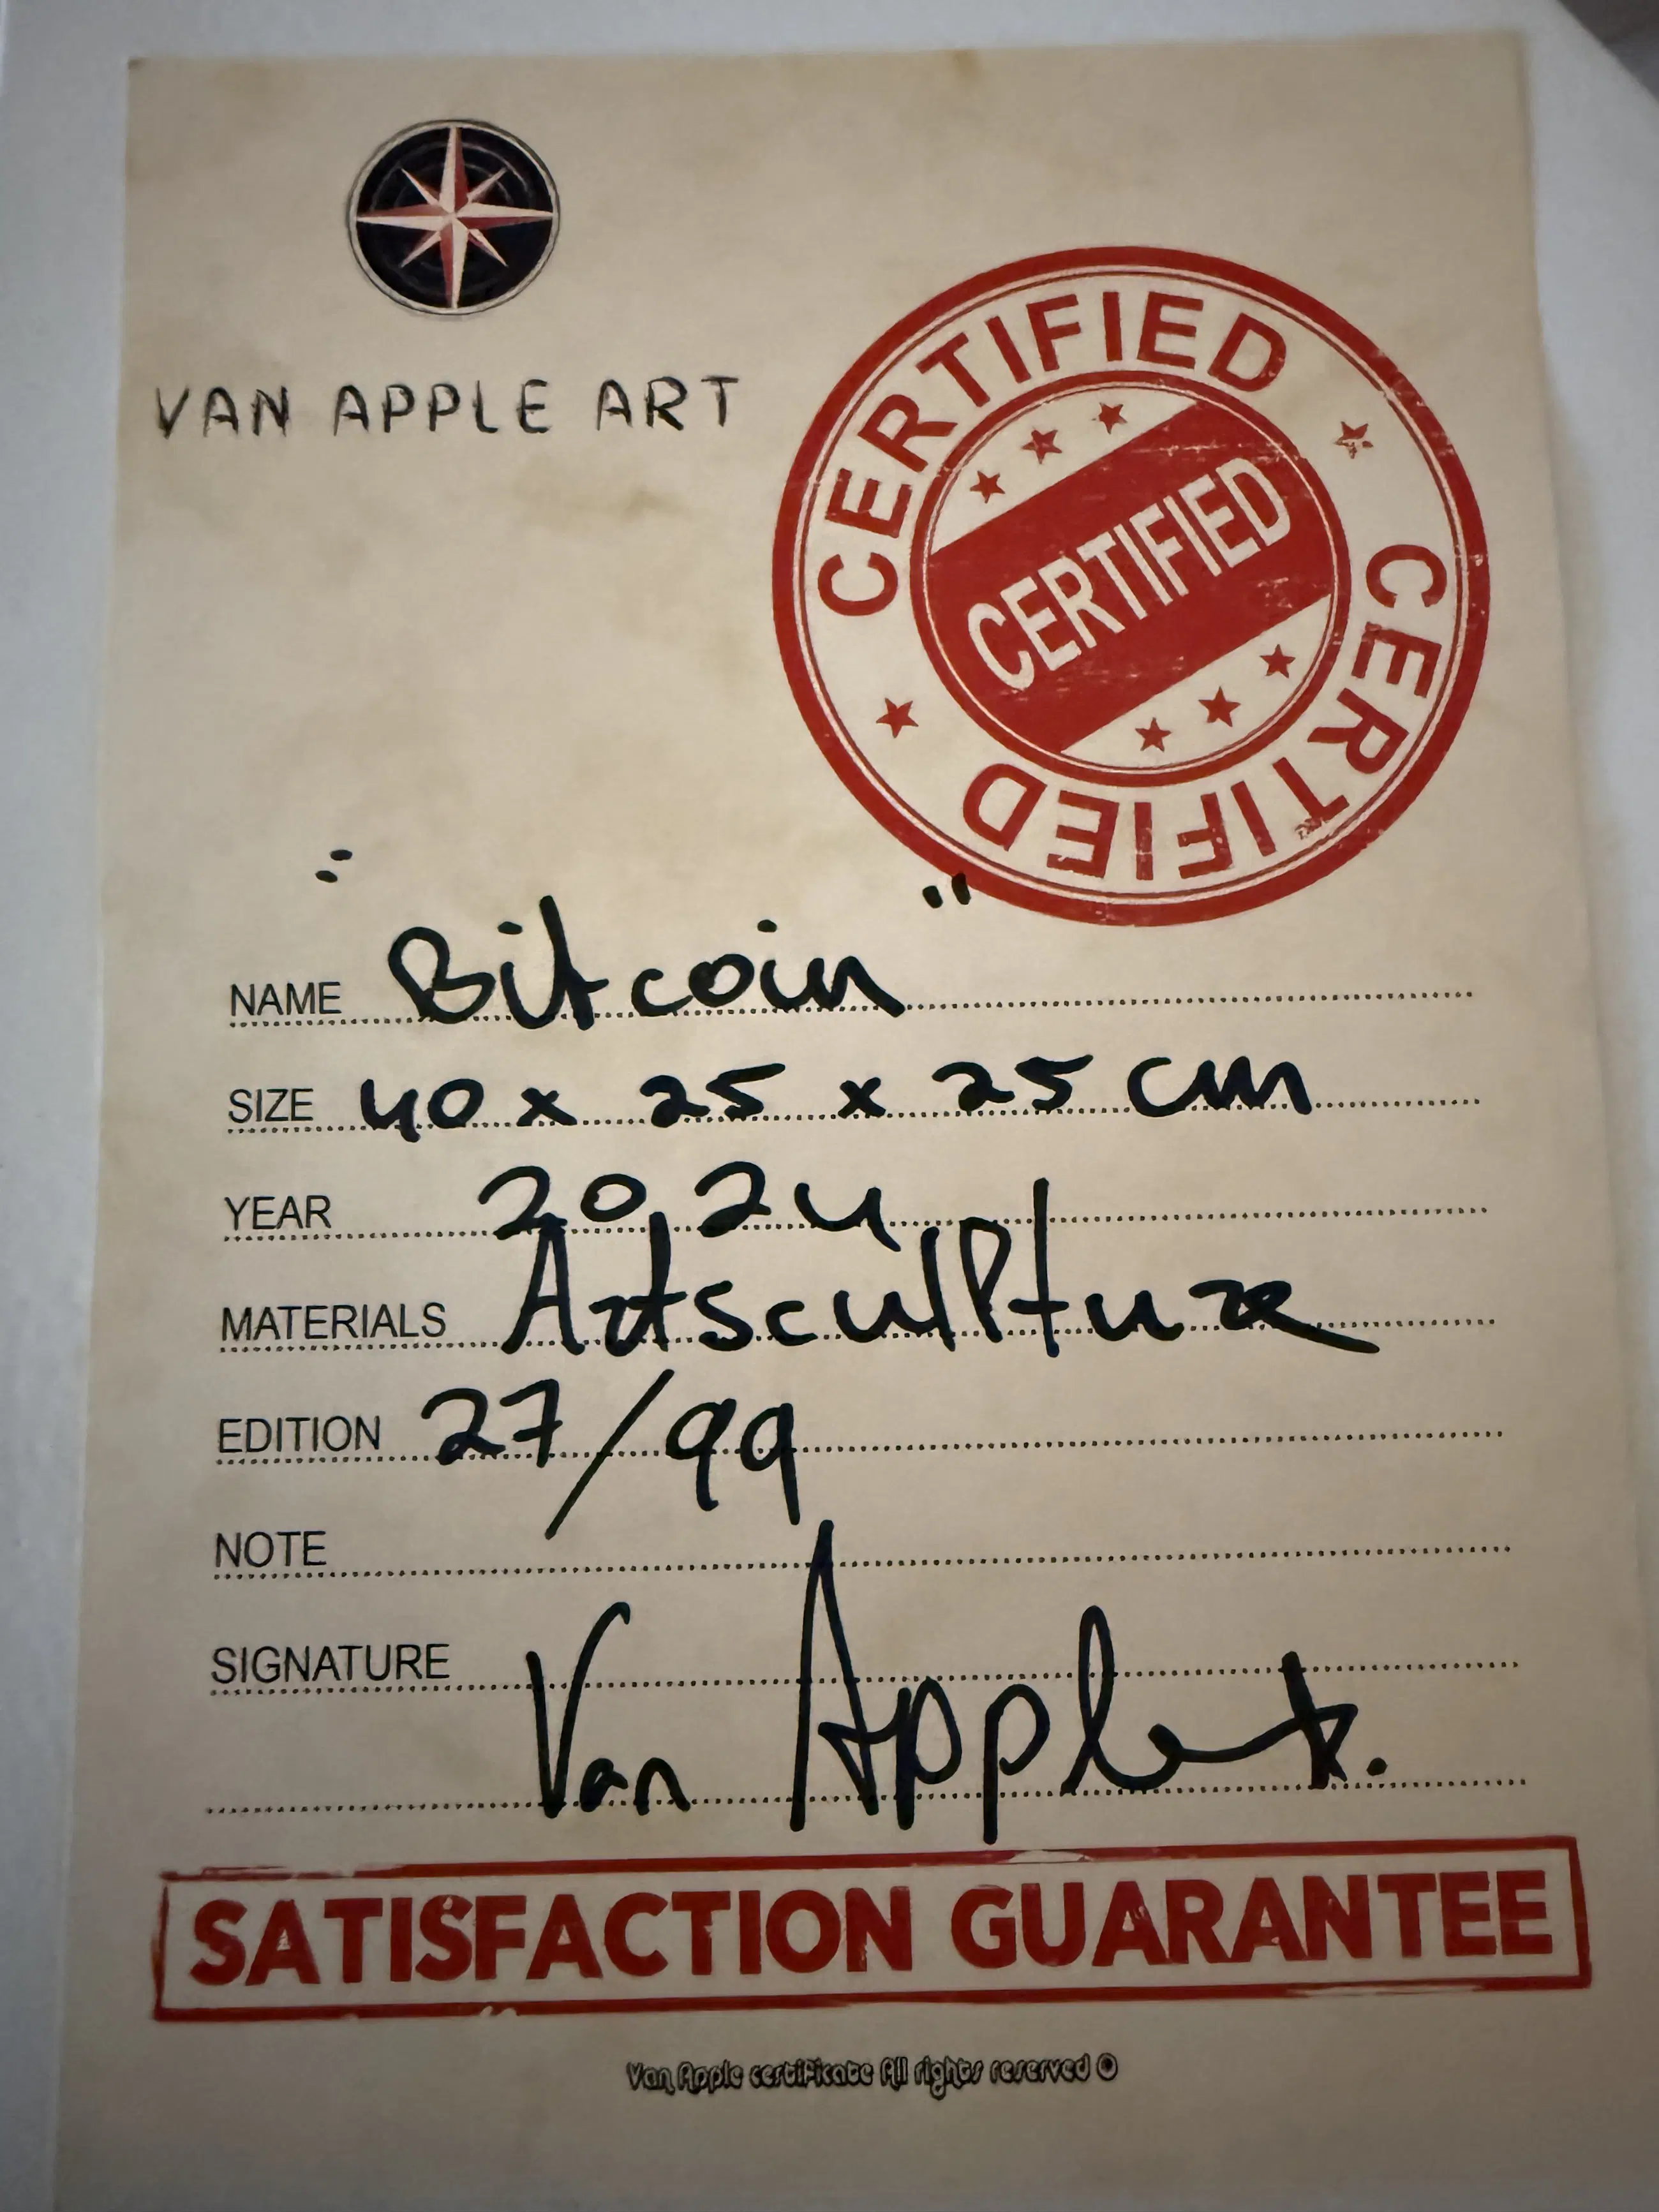 VAN APPLE ART
CERTIFIED
CERTIFIED
CERTIFIED
NAME "Bitcoin"
SIZE 40 x 25 x 25 cm
YEAR 2024
MATERIALS Artsculpture
EDITION 27/99
NOTE
SIGNATURE
Van Apple
SATISFACTION GUARANTEE
Van Apple certificate All rights reserved ©